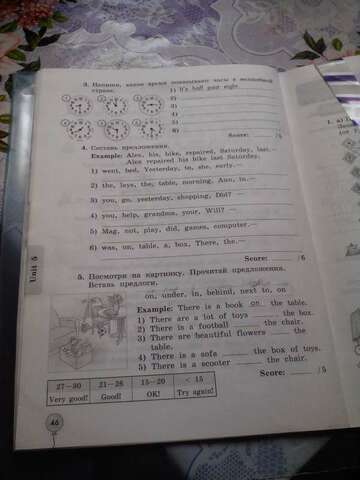 3. Напиши, какое время показывают часы в волшебной
стране.
1) It's half past eight
2)
3)
4)
5)
6)
Score: /5
4. Составь предложения.
Example: Alex, his, bike, repaired, Saturday, last.–
Alex repaired his bike last Saturday.
1) went, bed, Yesterday, to, she, early.—
2) the, lays, the, table, morning, Ann, in.—
3) you, go, yesterday, shopping, Did? —
4) you, help, grandma, your, Will? —
5) Mag, not, play, did, games, computer.—
6) was, on, table, a, box, There, the.—
Score: /6
Unit 5
5. Посмотри на картинку. Прочитай предложения.
Вставь предлоги.
on, under, in, behind, next to, on
Example: There is a book on the table.
1) There are a lot of toys the box.
2) There is a football the chair.
3) There are beautiful flowers the
table.
4) There is a sofa the box of toys.
5) There is a scooter the chair.
Score: /5
27—30 21—26 15—20 < 15
Very good! Good! OK! Try again!
46